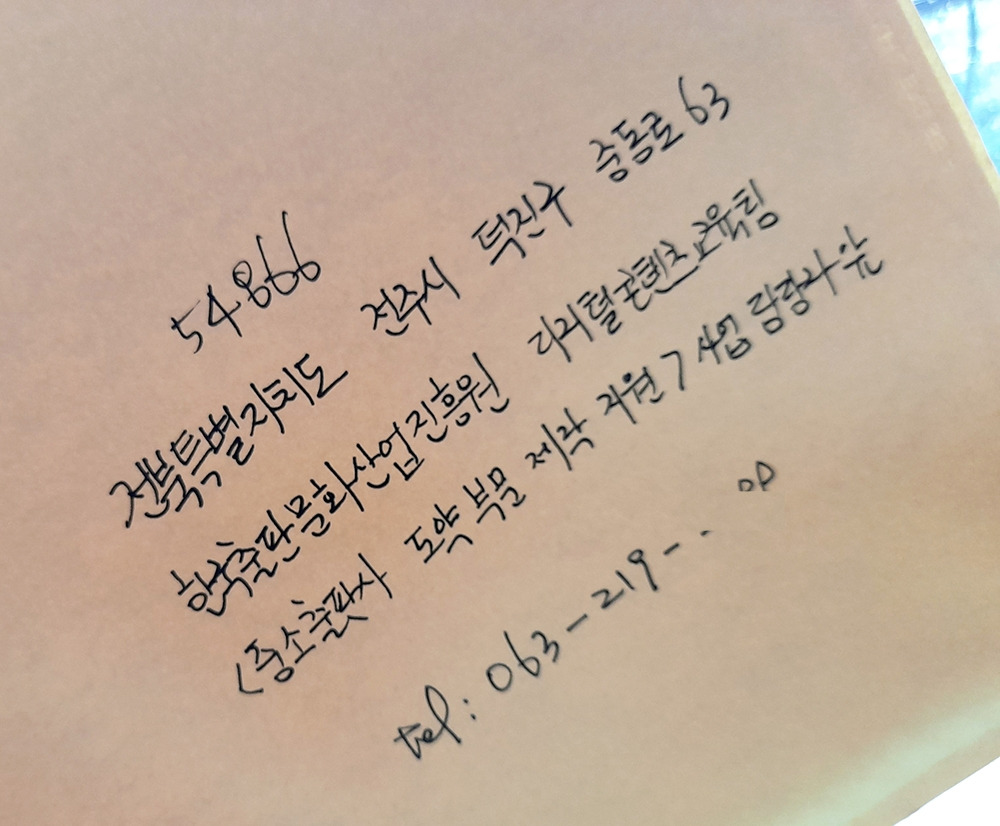 54866
전북특별자치도 전주시 덕진구 중동로 63
한국출판문화산업진흥원 디지털콘텐츠교육팀
<중소출판사 도약부문 제작 지원> 사업 담당자 앞
tel: 063-219-